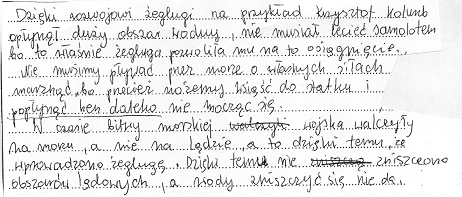 Dzięki rozwojowi żeglugi na przykład Krzysztof Kolumb
opłynął duży obszar wodny, nie musiał lecieć samolotem
bo to właśnie żegluga pozwoliła mu na to osiągnięcie.
Nie musimy pływać przez morze o własnych siłach
marznąć, bo przecież możemy wsiąść do statku i
popłynąć hen daleko nie mocząc się.
W czasie bitwy morskiej walczyli wojska walczyły
na morzu, a nie na lądzie, a to dzięki temu, że
wprowadzono żeglugę. Dzięki temu nie zniszczono
obszarów lądowych, a wody zniszczyć się nie da.